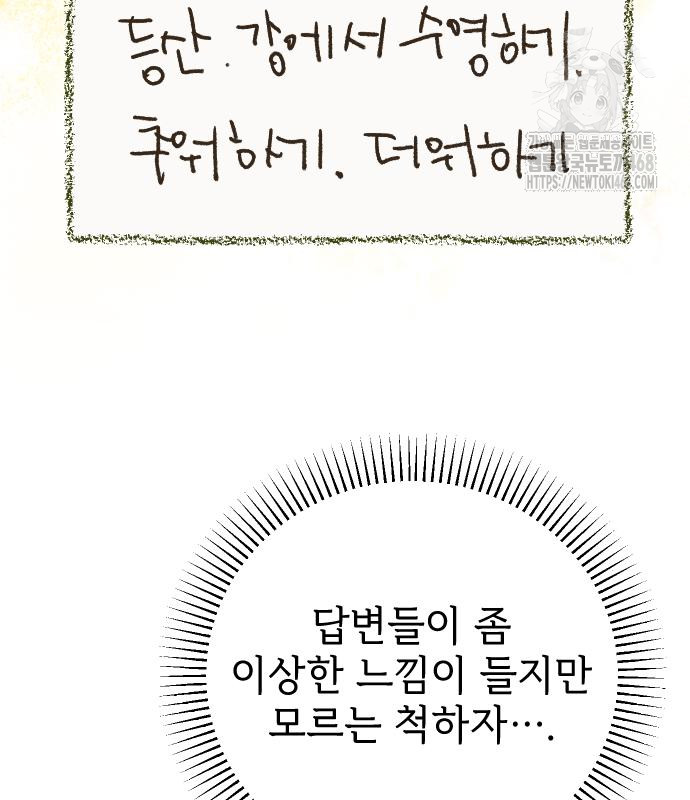 등산. 강에서 수영하기.
추워하기. 더워하기
HTTPS://NEWTOKI468.COM
답변들이 좀
이상한 느낌이 들지만
모르는 척하자….